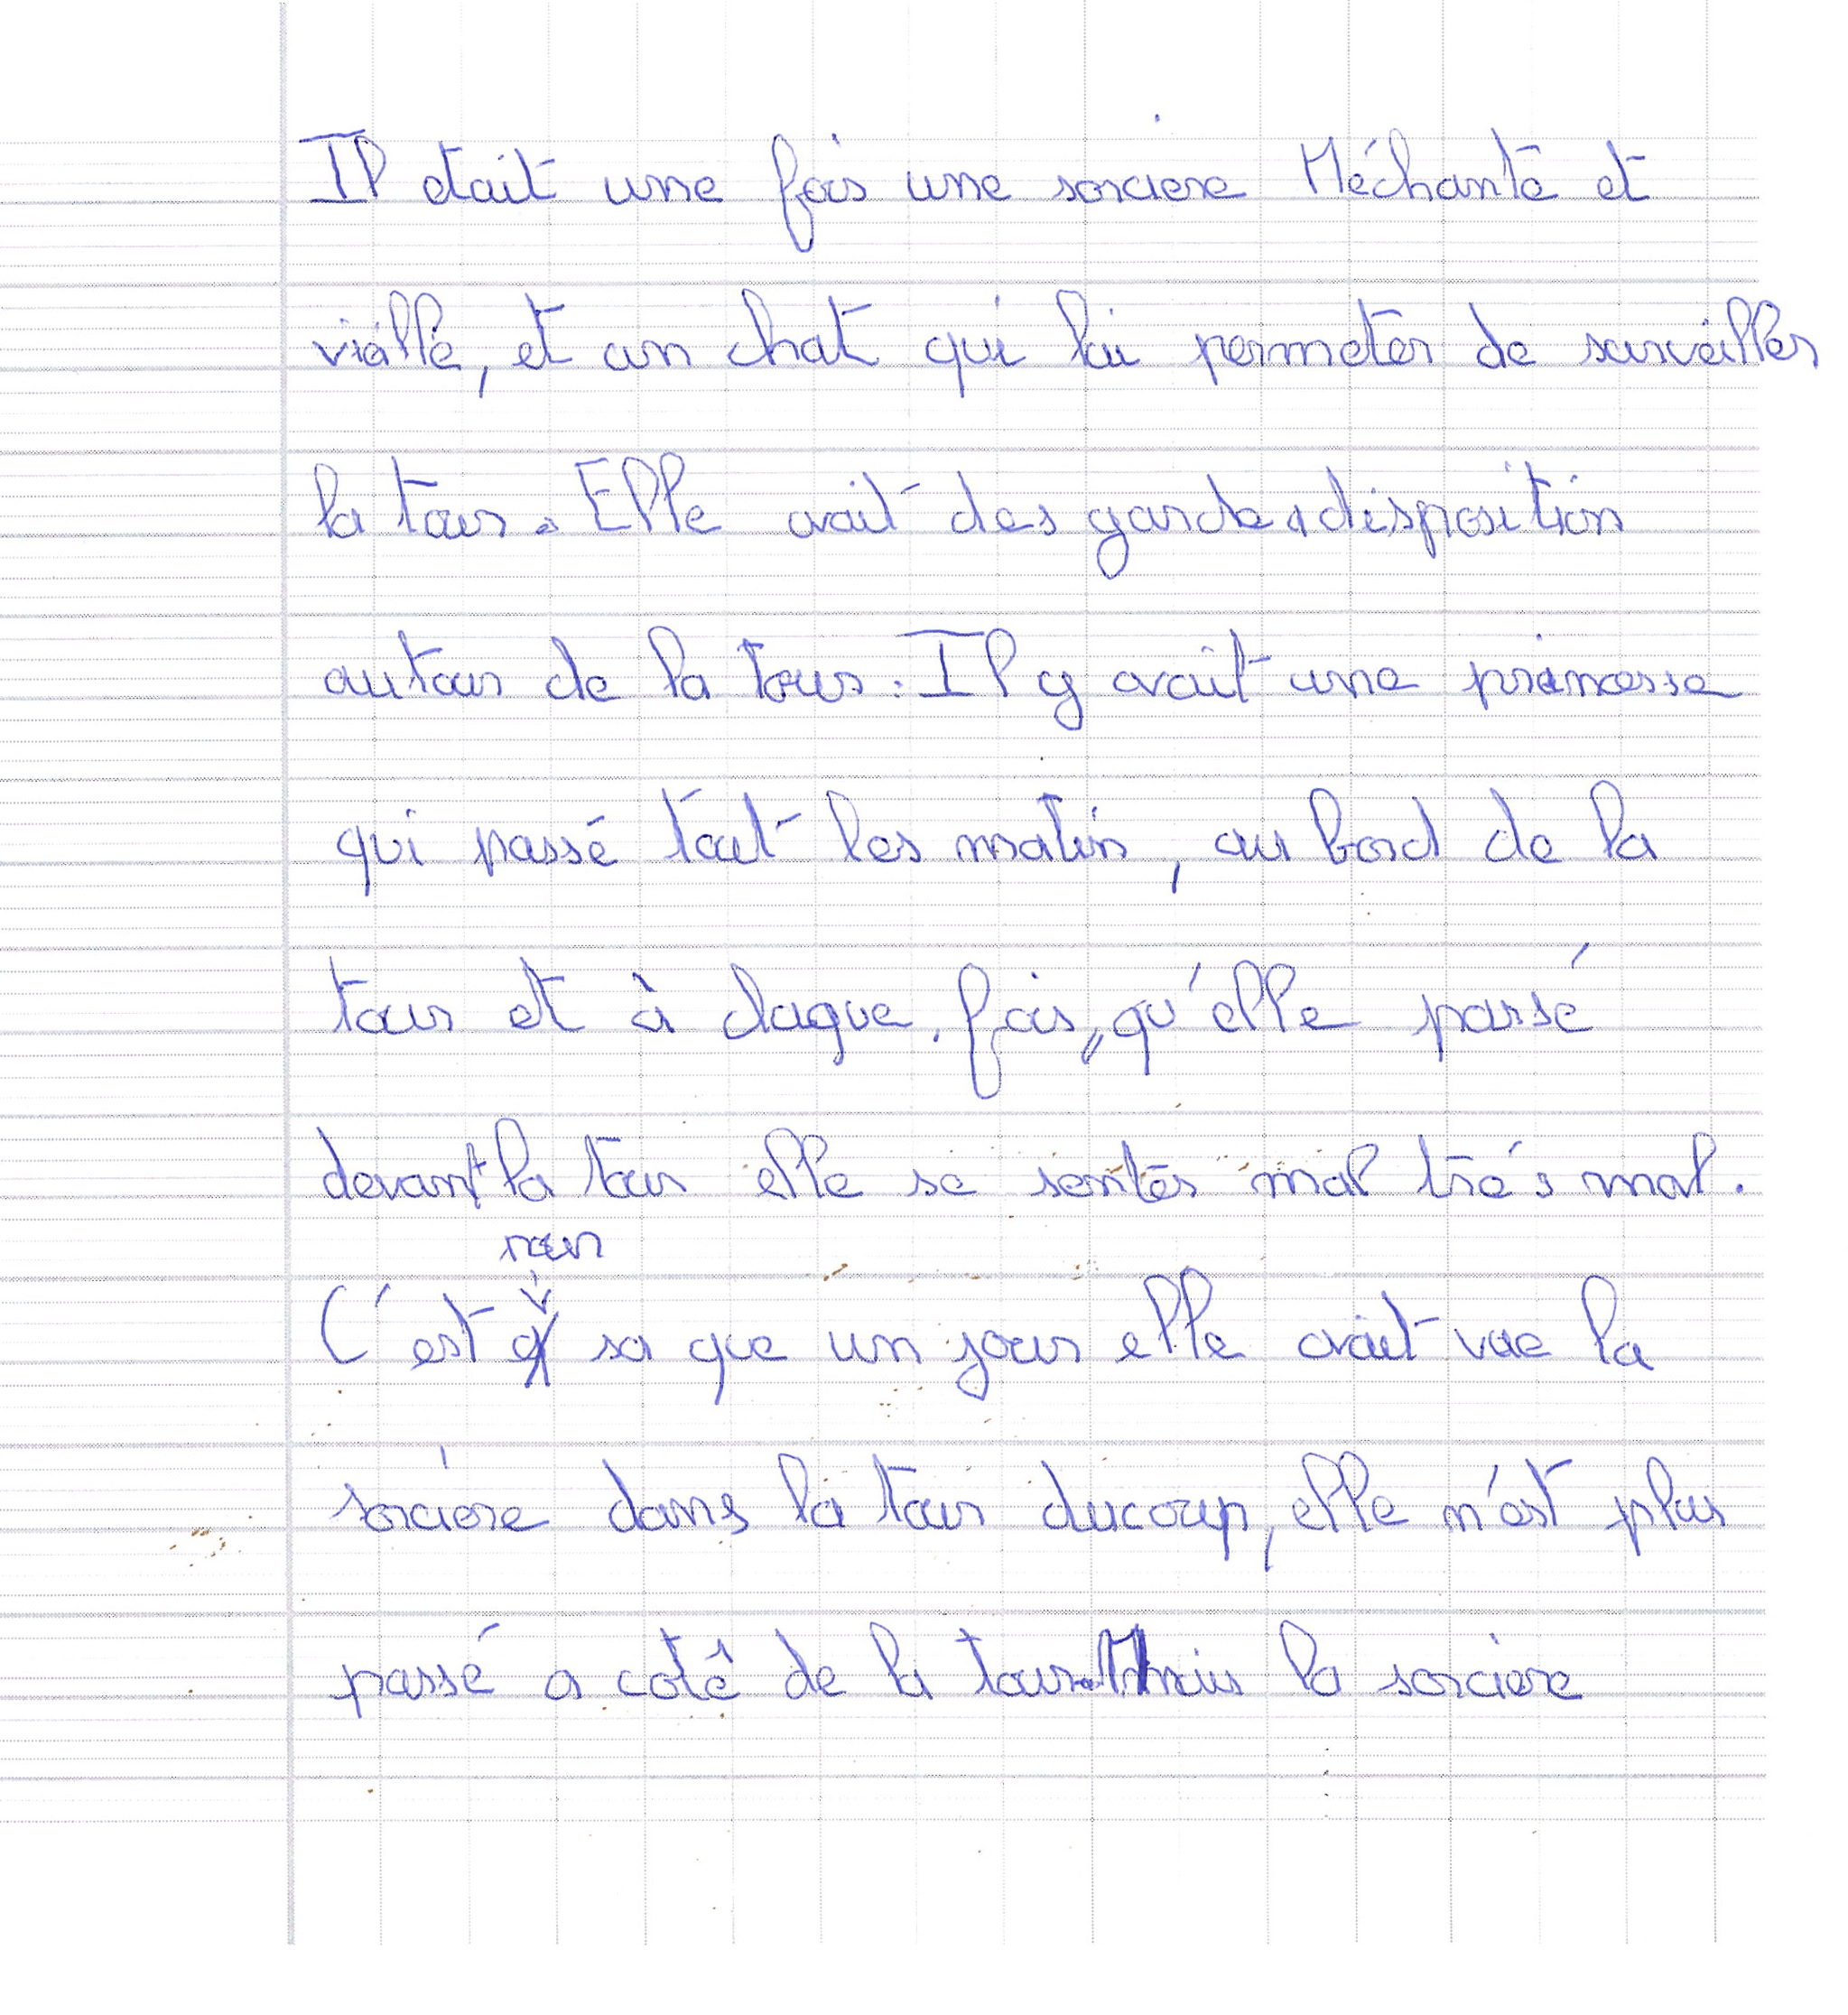 Il etait une fois une sorciere Méchante et
vieille, et un chat qui lui permeter de surveiller
la tour. Elle avait des garde a disposition
autour de la tour. Il y avait une princesse
qui passé tout les matin, au bord de la
tour et à chaque, fois, qu'elle passé
devant la tour elle se senter mal trés mal.
pour
C'est sa que un jour elle avait vue la
sorciere dans la tour ducoup, elle n'est plus
passé a coté de la tour. Mais la sorciere